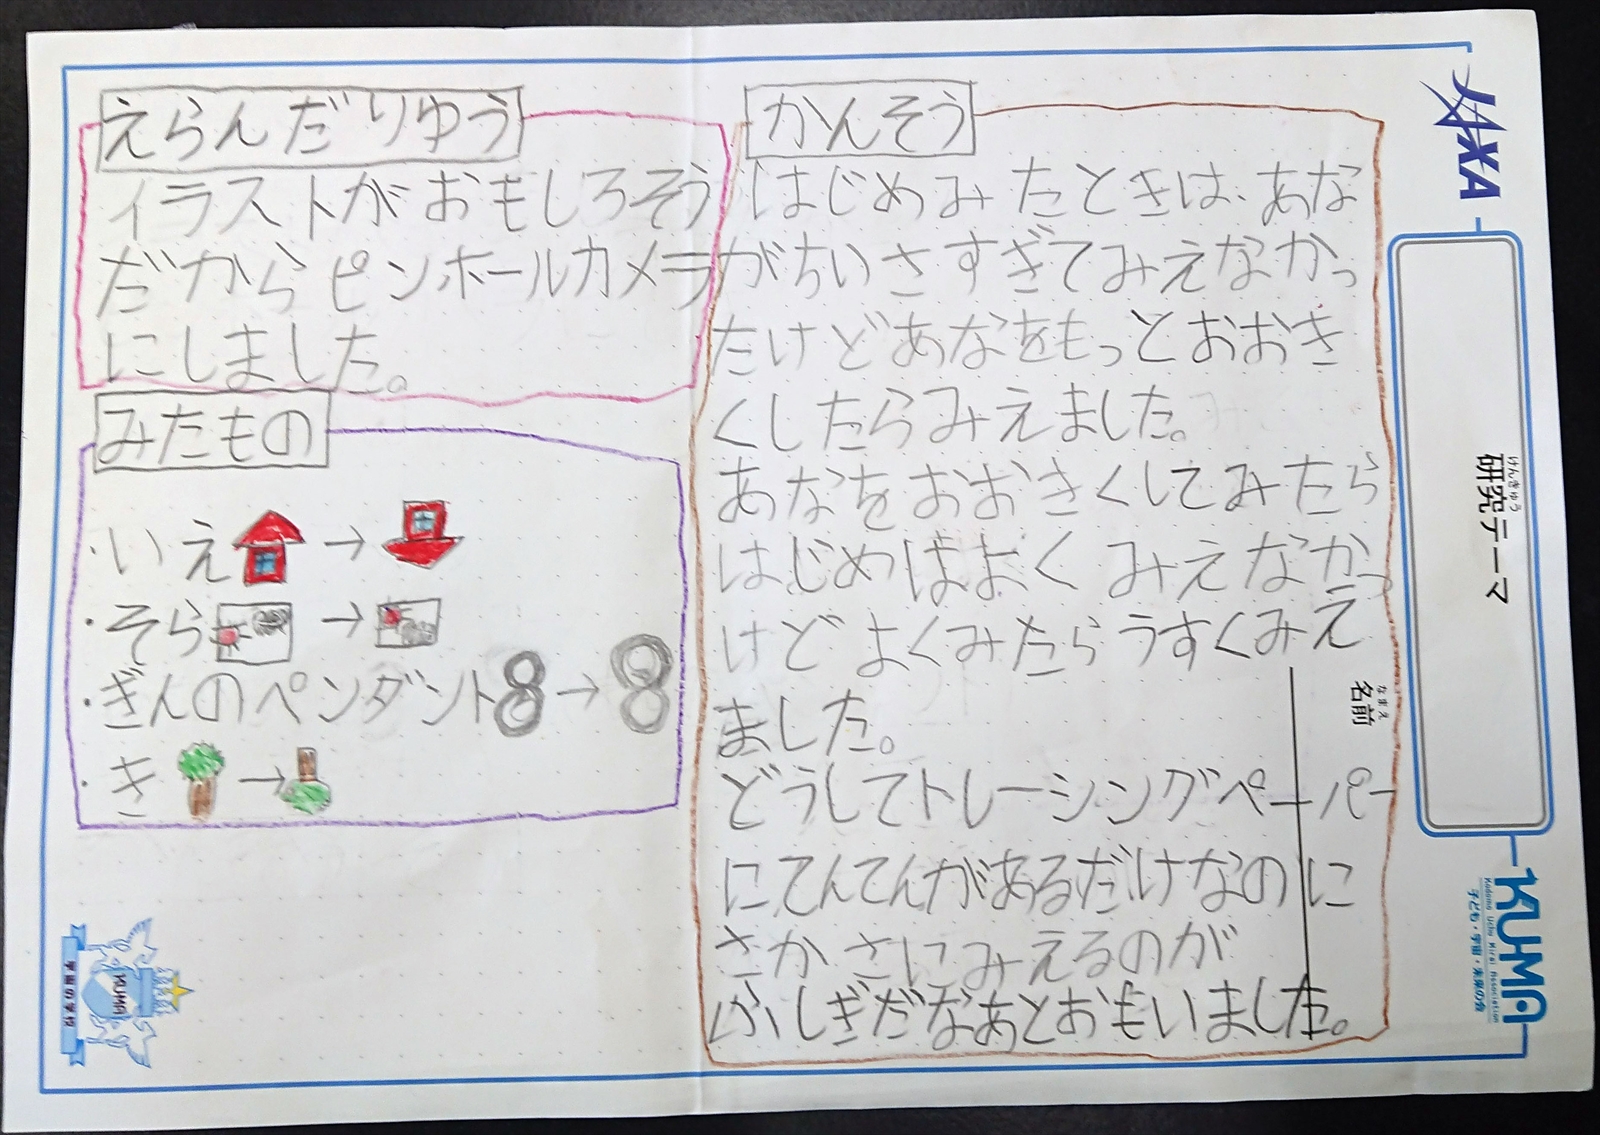 えらんだりゆう
イラストがおもしろそう
だからピンホールカメラ
にしました。
みたもの
・いえ→
・そら→
・ぎんのペンダント8→8
・き→
かんそう
はじめみたときは、あな
がちいさすぎてみえなかっ
たけどあなをもっとおおき
くしたらみえました。
あなをおおきくしてみたら
はじめはよくみえなかっ
けどよくみたらうすくみえ
ました。
どうしてトレーシングペーパー
にてんてんがあるだけなのに
さかさにみえるのが
ふしぎだなあとおもいました。
JAXA
研究テーマ
けんきゅう
名前
なまえ
KUMA
Kodomo Uchu Mirai Association
子ども・宇宙・未来の会
KUMA
宇宙の学校